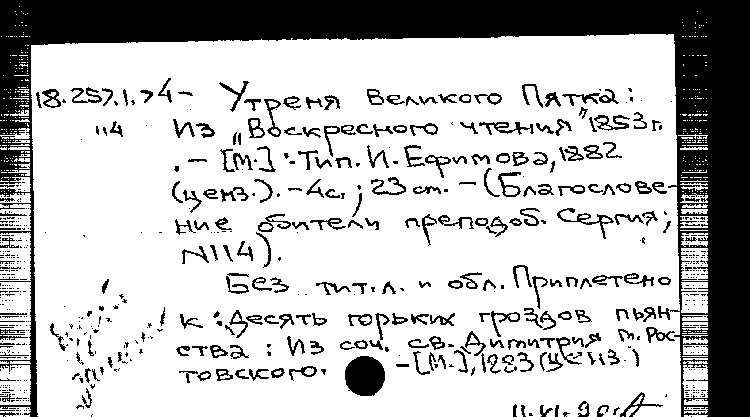 18.257.1.74 - Утреня Великого Пятка:
114 Из „Воскресного чтения" 1853 г.
. - [М.]: Тип. И. Ефимова, 1882
(ценз.). - 4 с.; 23 cm. - (Благослове-
ние обители преподоб. Сергия;
N114).
Без тит.л. и обл. Приплетено
к: Десять горьких гроздов пьян-
ства: Из соч. св. Димитрия м. Рос-
товского. - [М.], 1883 (ценз.)
11.VI.90г.